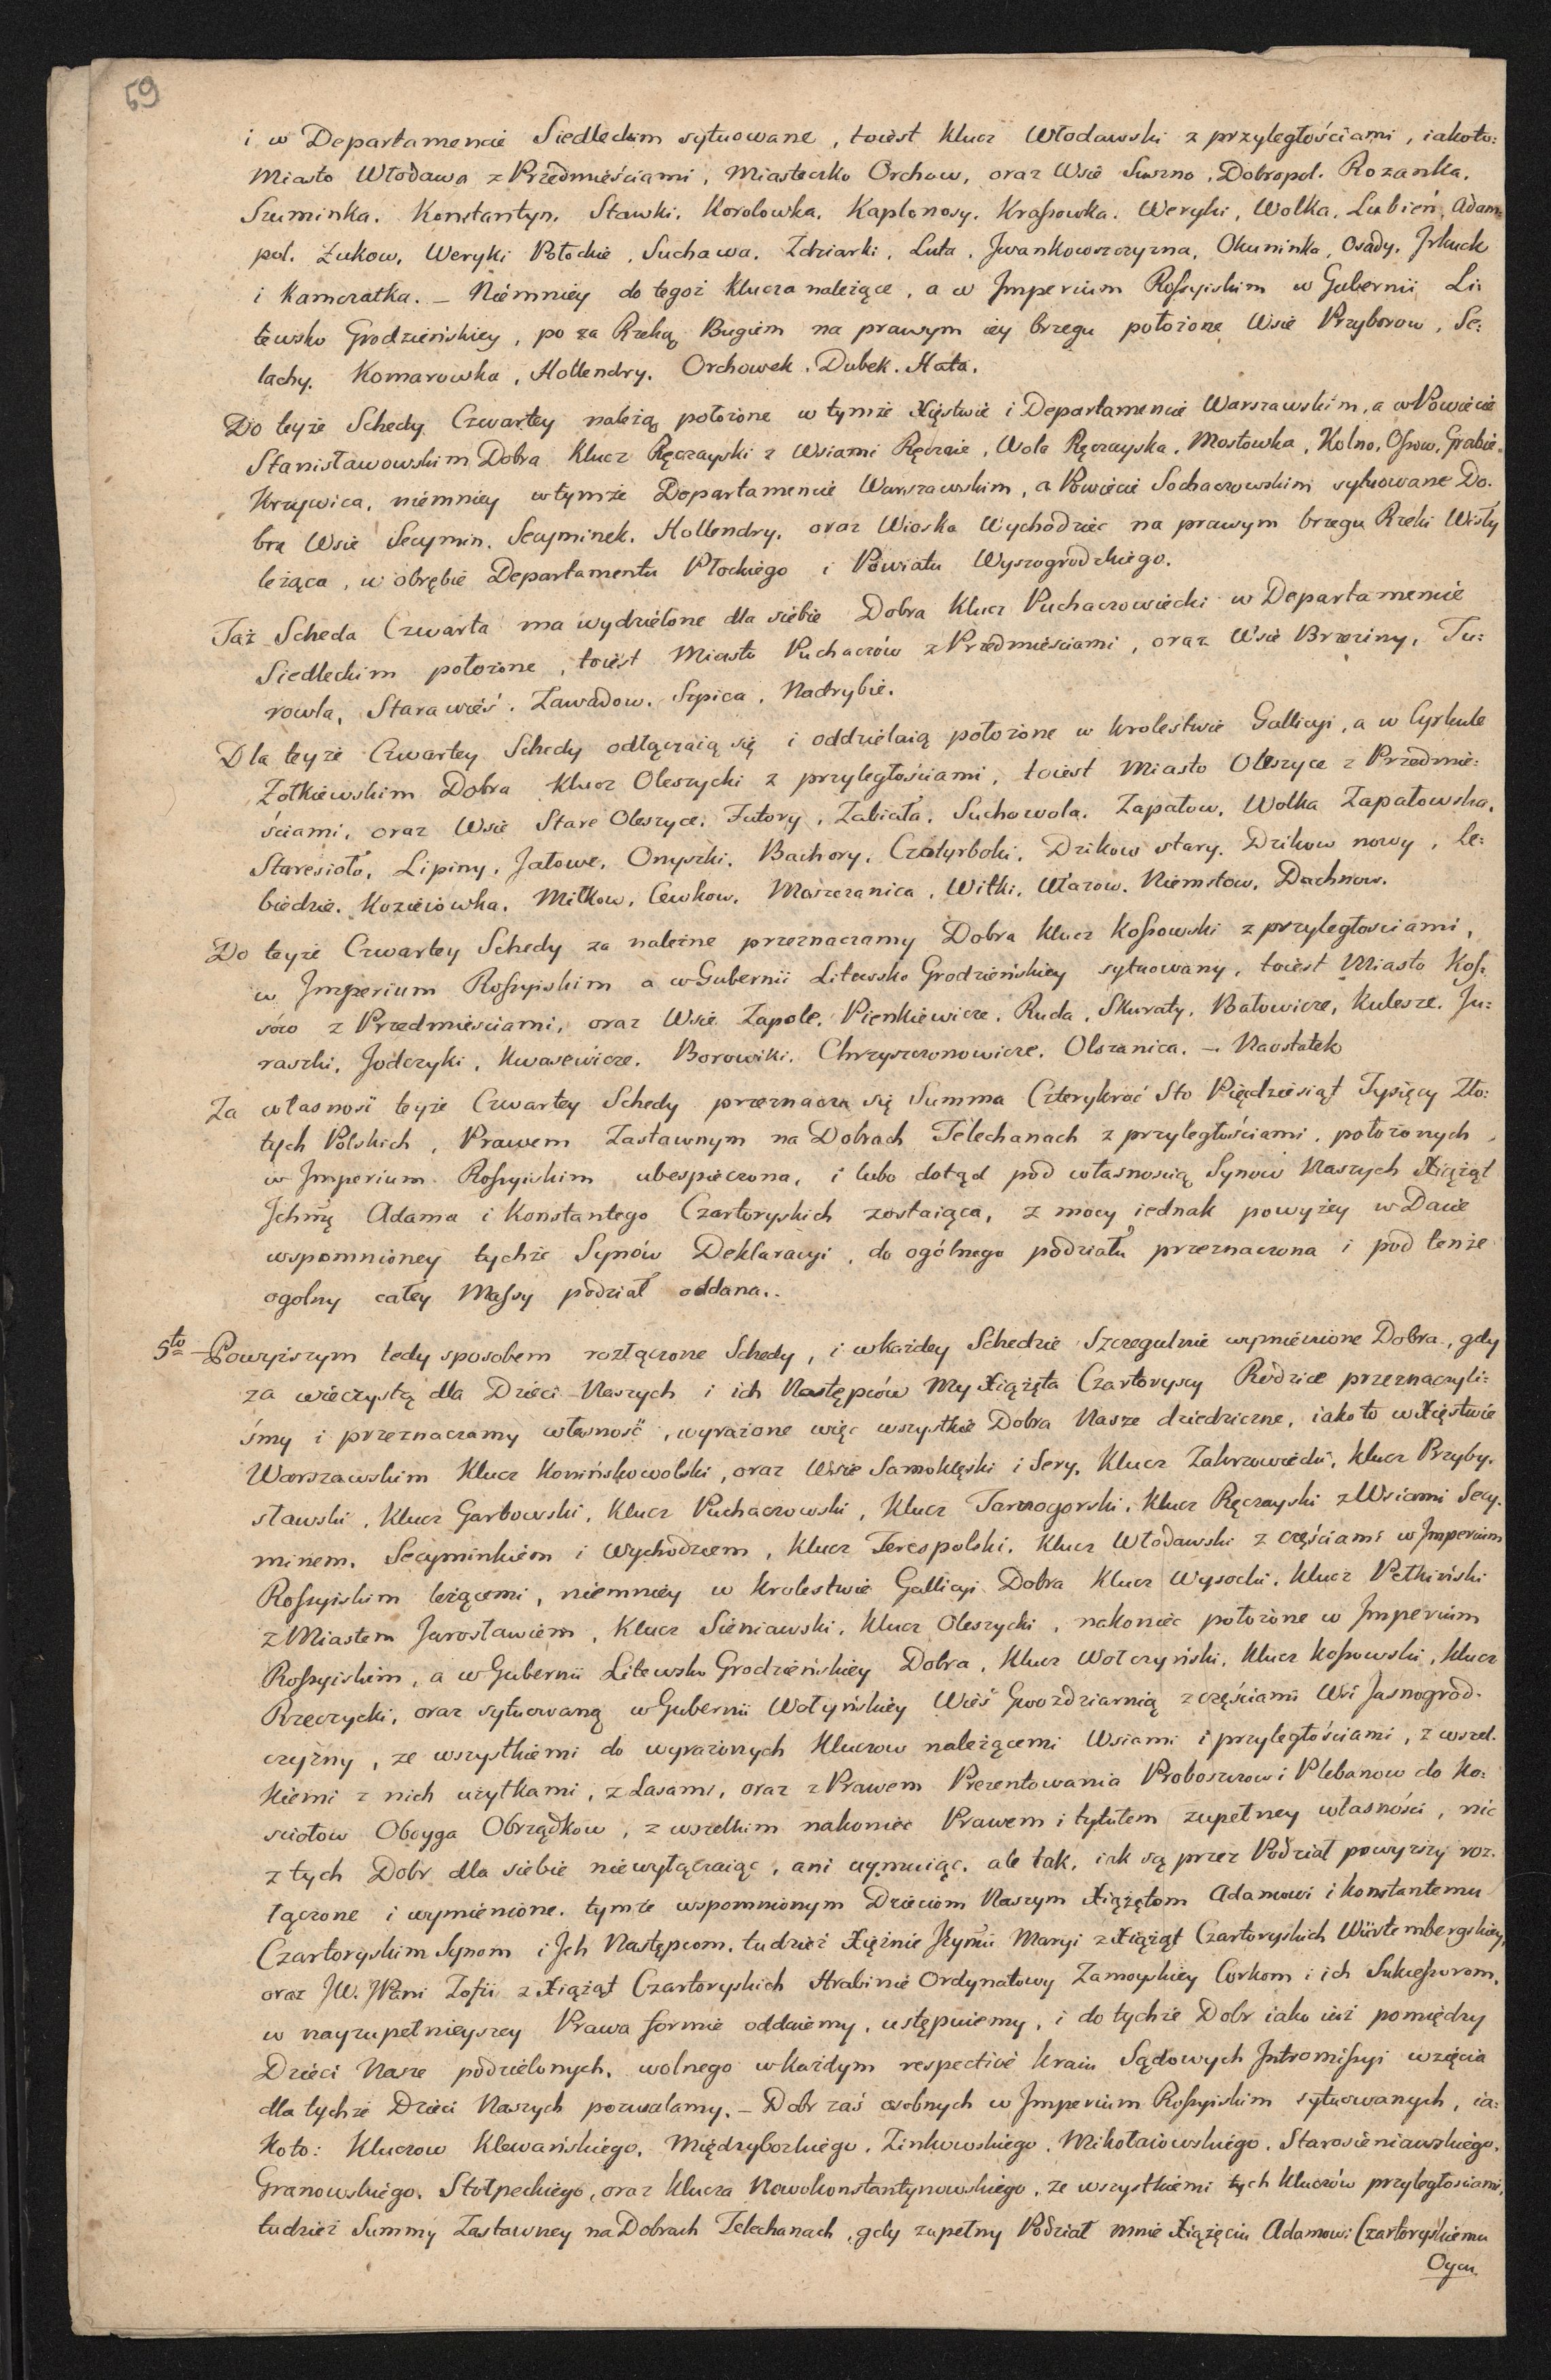 59
i w Departamencie Siedleckim sytuowane, toiest Klucz Włodawski z przyległościami, iakoto:
Miasto Włodawa z Przedmieściami, Miasteczko Orchow, oraz Wsie Suszno, Dobropol. Rozanka,
Szuminka. Konstantyn. Stawki. Korolowka. Kaplonosy. Kraſsowka. Weryki, Wolka, Lubień, Adam=
pol. Zukow, Weryki Płockie, Suchawa, Zdziarki, Luta, Jwankowszczyzna, Okuninka, Osady, Jrkuck
i Kamczatka. – Niemniey do tegoż Klucza należące, a w Jmperium Roſsyiskim w Gubernii Li=
tewsko Grodzieńskiey, po za Rzeką Bugiem na prawym iey brzegu położone Wsie Przyborow, Se=
lachy. Komarowka, Hollendry. Orchowek. Dubek. Hata.
Do teyże Schedy Czwartey należą położone w tymże Xięstwie i Departamencie Warszawskim, a w Powiecie
Stanisławowskim Dobra Klucz Ręczayski z Wsiami Ręczaie, Wola Ręczayska, Mostowka, Kolno, Oſsow, Grabie,
Krzywica, niemniey w tymże Departamencie Warszawskim, a Powiecie Sochaczowskim sytuowane Do=
bra Wsie Secymin, Secyminek, Hollendry, oraz Wioska Wychodziec na prawym brzegu Rzeki Wisły
leżąca, w obrębie Departamentu Płockiego i Powiatu Wyszogrodzkiego.
Taż Scheda Czwarta ma wydzielone dla siebie Dobra Klucz Puchaczowiecki w Departamencie
Siedleckim położone, toiest Miasto Puchaczów z Przedmieściami, oraz Wsie Brzeziny, Tu=
rowla, Stara wieś. Zawadow. Szpica. Nadrybie.
Dla teyże Czwartey Schedy odłączaią się i oddzielaią położone w Krolestwie Gallicyi, a w Cyrkule
Zołkiewskim Dobra Klucz Oleszycki z przyległościami, toiest Miasto Oleszyce z Przedmie=
ściami, oraz Wsie Stare Oleszyce, Futory, Zabiała, Suchowola. Zapałow, Wolka Zapałowska,
Staresioło, Lipiny, Jałowe, Onyszki, Bachory, Czetyrboki, Dzikow stary. Dzikow nowy, Le=
biedzie. Kozieiowka, Miłkow, Cewkow. Moszczanica, Witki, Ułazow. Niemstow, Dachnow.
Do teyże Czwartey Schedy za należne przeznaczamy Dobra Klucz Koſsowski z przyległościami,
w Jmperium Roſsyiskim a w Gubernii Litewsko Grodzieńskiey sytuowany, toiest Miasto Koſ=
sów z Przedmieściami, oraz Wsie Zapole, Pienkiewicze, Ruda, Skuraty, Bałowicze, Kulesze. Ju=
raszki, Jodczyki, Kwasewicze, Borowiki, Chrzyszczonowicze, Olszanica. – Naostatek
Za własność teyże Czwartey Schedy przeznacza się Summa Czterykroć Sto Pięćdziesiąt Tysięcy Zło=
tych Polskich, Prawem Zastawnym na Dobrach Telechanach z przyległościami, położonych
w Jmperium Roſsyiskim ubespieczona, i lubo dotąd pod własnością Synow Naszych Xiążąt
Jchmę Adama i Konstantego Czartoryskich zostaiąca, z mocy iednak powyżey w Dacie
wspomnioney tychże Synów Deklaracyi, do ogólnego podziału przeznaczona i pod tenże
ogolny całey Maſsy podział oddana.
5to – Powyższym tedy sposobem rozłączone Schedy, i w każdey Schedzie Szczegulnie wymienione Dobra, gdy
za wieczystą dla Dzieci Naszych i ich Następców My Xiążęta Czartoryscy Rodzice przeznaczyli=
śmy i przeznaczamy własność, wyrażone więc wszystkie Dobra Nasze dziedziczne, iako to w Xięstwie
Warszawskim Klucz Konińskowolski, oraz Wsie Samoklęski i Sery, Klucz Zakrzowiecki, Klucz Przyby=
sławski, Klucz Garbowski, Klucz Puchaczowski, Klucz Tarnogorski, Klucz Ręczayski z Wsiami Secy=
minem, Secyminkiem i Wychodzcem, Klucz Terespolski, Klucz Włodawski z częściami w Jmperium
Roſsyiskim leżącemi, niemniey w Krolestwie Gallicyi Dobra Klucz Wysocki, Klucz Pełkiński
z Miastem Jarosławiem, Klucz Sieniawski, Klucz Oleszycki, nakoniec położone w Jmperium
Roſsyiskim, a w Gubernii Litewsko Grodzieńskiey Dobra, Klucz Wołczyński, Klucz Koſsowski, Klucz
Rzeczycki, oraz sytuowaną w Gubernii Wołyńskiey Wieś Gwozdziarnią z częściami Wsi Jasnogrod=
czyzny, ze wszystkiemi do wyrażonych Kluczow należącemi Wsiami i przyległościami, z wszel=
kiemi z nich użytkami, z Lasami, oraz z Prawem Prezentowania Proboszczow i Plebanow do Ko=
sciołow Oboyga Obrządkow, z wszelkim nakoniec Prawem i tytułem zupełney własności, nic
z tych Dobr dla siebie niewyłączaiąc, ani uymuiąc, ale tak, iak są przez Podział powyższy roz=
łączone i wymienione, tymże wspomnionym Dzieciom Naszym Xiążętom Adamowi i Konstantemu
Czartoryskim Synom i Jch Następcom, tudzież Xiężnie Maryi z Xiążąt Czartoryskich Würtembergskiey,
oraz JW. JPani Zofii z Xiążąt Czartoryskich Hrabinie Ordynatowy Zamoyskiey Corkom i ich Sukceſsorom,
w nayzupełnieyszey Prawa formie oddaiemy, ustępuiemy, i do tychże Dobr iako iuż pomiędzy
Dzieci Nasze podzielonych, wolnego w każdym respectivé kraiu Sądowych Jntromiſsyi wzięcia
dla tychże Dzieci Naszych pozwalamy. – Dobr zaś osobnych w Jmperium Roſsyiskim sytuowanych, ia=
koto: Kluczow Klewańskiego, Międzybozkiego, Zinkowskiego, Mikołaiowskiego, Starosieniawskiego,
Granowskiego, Stołpeckiego, oraz Klucza Nowokonstantynowskiego, ze wszystkiemi tych Kluczów przyległościami,
tudzież Summy Zastawney na Dobrach Telechanach, gdy zupełny Podział mnie Xiążęciu Adamowi Czartoryskiemu
Oycu